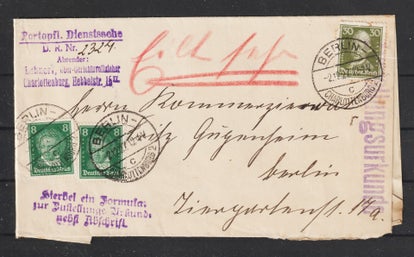 Portopfl. Dienstsache
D. R. Nr. 2324
Absender:
Lehnert, Ober-Gerichtsvollzieher
Charlottenburg,
Eilt sehr
30
Deutsches Reich
BERLIN
CHARLOTTENBURG 2
c
8 8
Deutsches Reich Deutsches Reich
BERLIN
CHARLOTTENBURG 2
c
Herrn Kommerzienrat
Fritz Gugenheim
Berlin
Tiergartenstr. 17a.
Hierbei ein Formular
zur Zustellungs-Urkunde
nebst Abschrift.